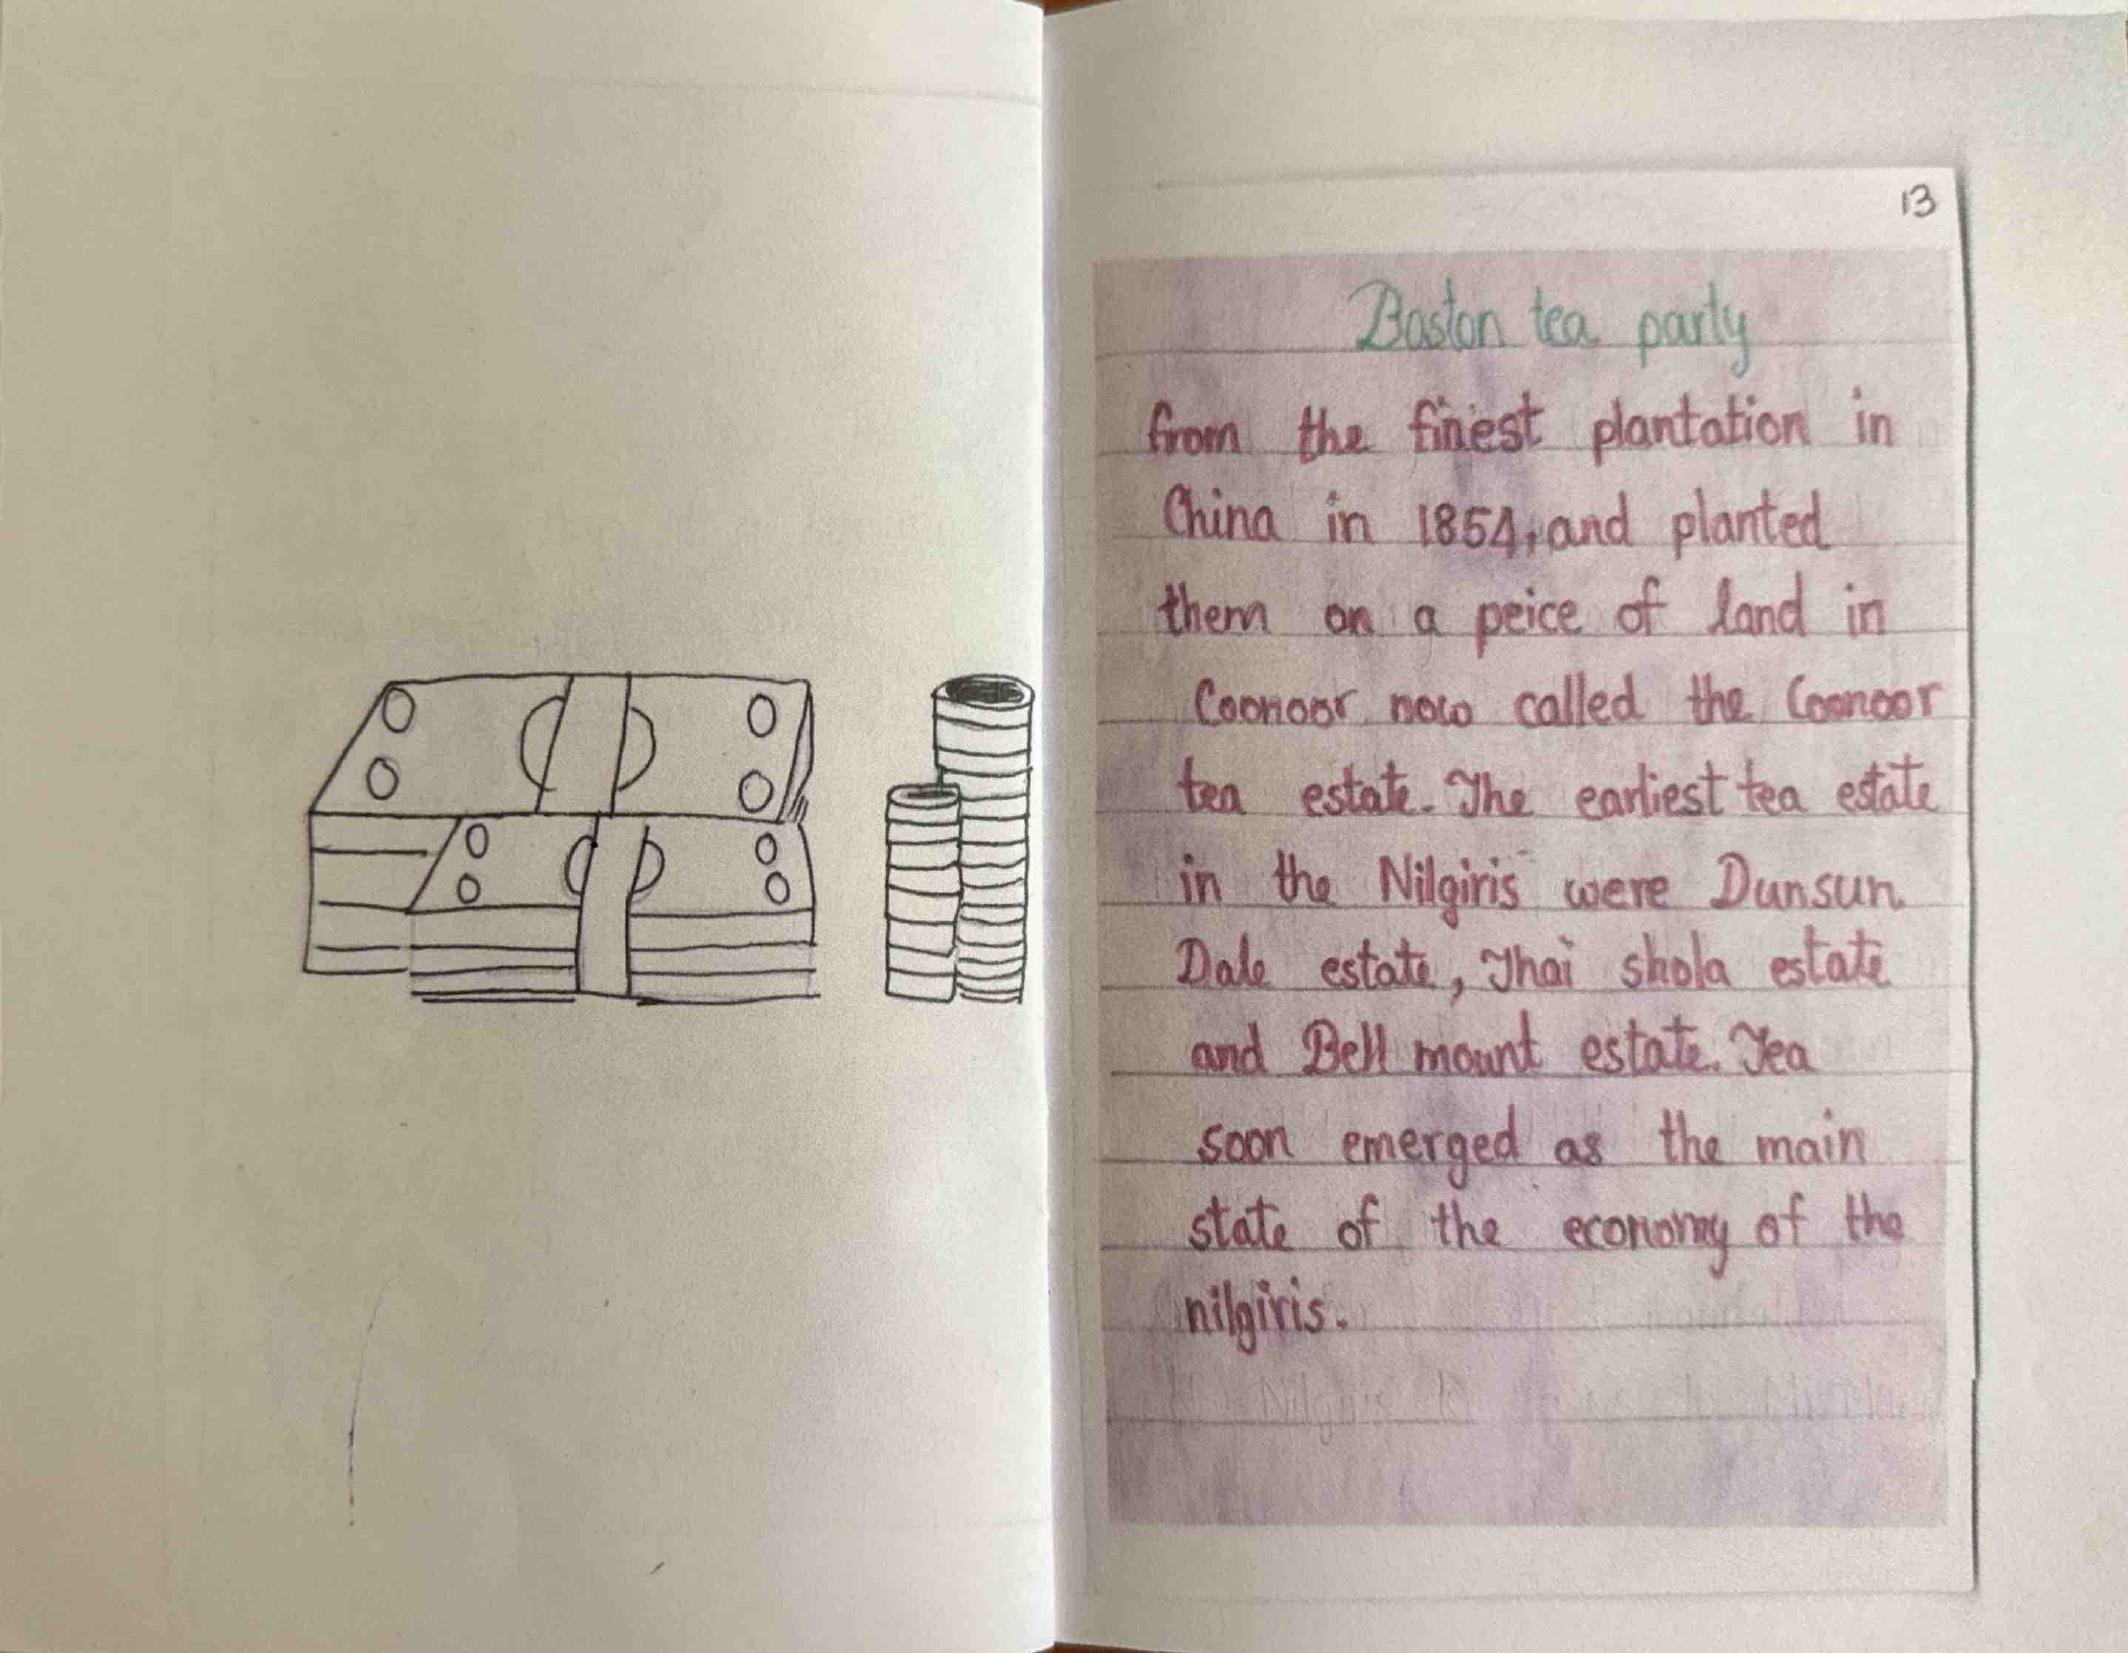 13
Boston tea party
from the finest plantation in
China in 1854, and planted
them on a peice of land in
Coonoor now called the Coonoor
tea estate. The earliest tea estate
in the Nilgiris were Dunsun
Dale estate, Thai shola estate
and Bell mount estate. Tea
soon emerged as the main
state of the economy of the
nilgiris.